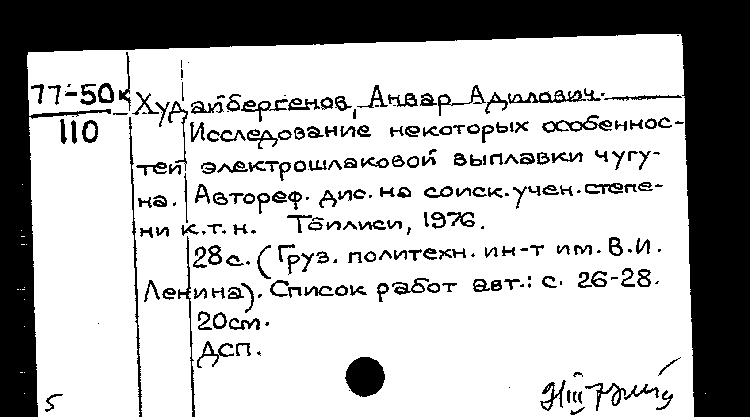 77-50к
110
Худайбергенов, Анвар Адилович.
Исследование некоторых особеннос-
тей электрошлаковой выплавки чугу-
на. Автореф. дис. на соиск. учен. степе-
ни к.т.н. Тбилиси, 1976.
28с. (Груз. политехн. ин-т им. В.И.
Ленина). Список работ авт.: с. 26-28.
20см.
ДСП.
5